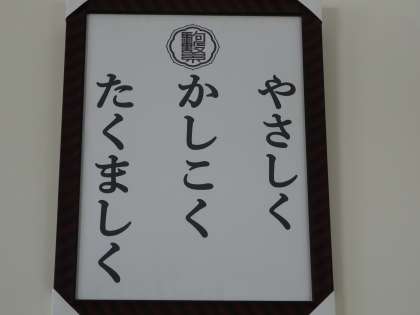 やさしく
かしこく
たくましく